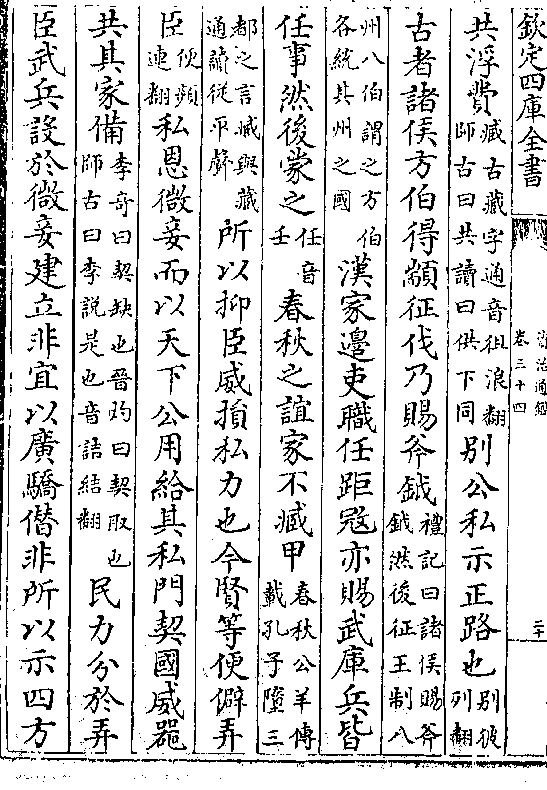 欽定四庫全書
資治通鑑
卷三十四
二十
共浮費臧古藏字通音徂浪翻師古曰共讀曰供下同別公私示正路也別彼列翻
古者諸侯方伯得顓征伐乃賜斧鉞禮記曰諸侯賜斧鉞然後征王制八
州八伯謂之方伯各統其州之國漢家邊吏職任距寇亦賜武庫兵皆
任事然後蒙之任音壬春秋之誼家不臧甲春秋公羊傳載孔子墮三
都之言臧與藏通讀從平聲所以抑臣威損私力也今賢等便僻弄
臣便頻連翻私恩微妾而以天下公用給其私門契國威器
共其家備李奇曰契缺也晉灼曰契取也師古曰李説是也音詰結翻民力分於弄
臣武兵設於微妾建立非宜以廣驕僭非所以示四方